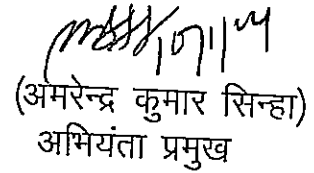 (अमरेन्द्र कुमार सिन्हा)
अभियंता प्रमुख